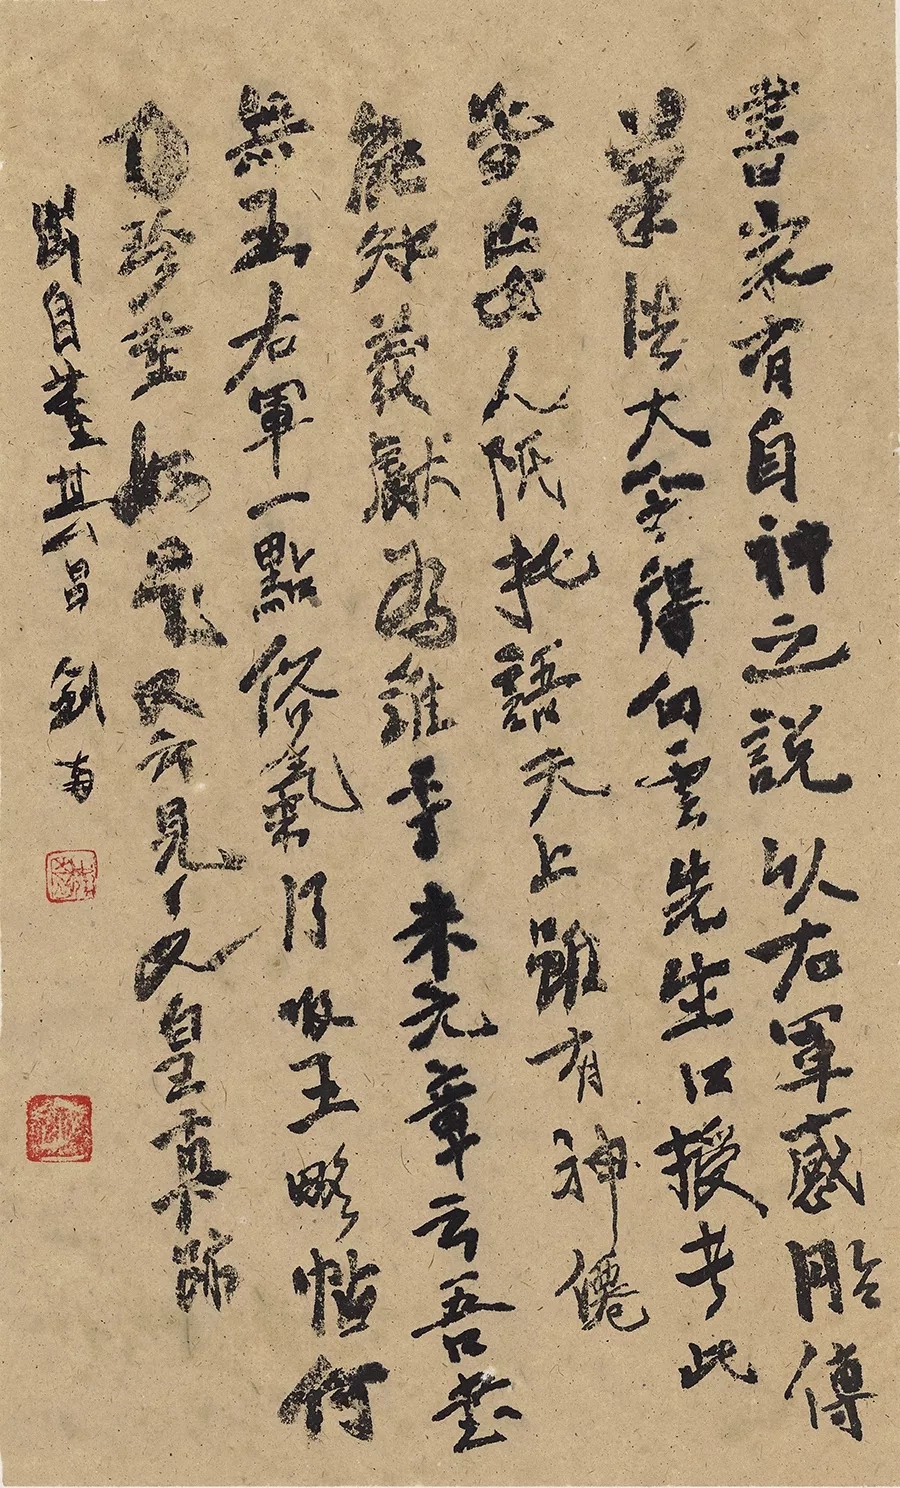 書家有自神之說以右軍感胎傳
筆法大令得白雲先生口授者此
皆妄人附托語天上雖有神僊
能知羲獻為誰乎米元章云吾書
無王右軍一點俗氣乃收王略帖何
乃珍重如是又所見人皇真跡
節自董其昌 劍南